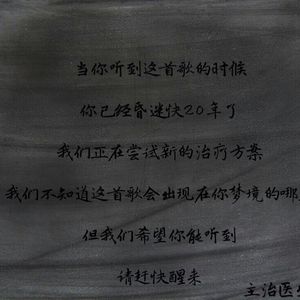 当你听到这首歌的时候
你已经昏迷快20年了
我们正在尝试新的治疗方案
我们不知道这首歌会出现在你梦境的哪
但我们希望你能听到
请赶快醒来
主治医生